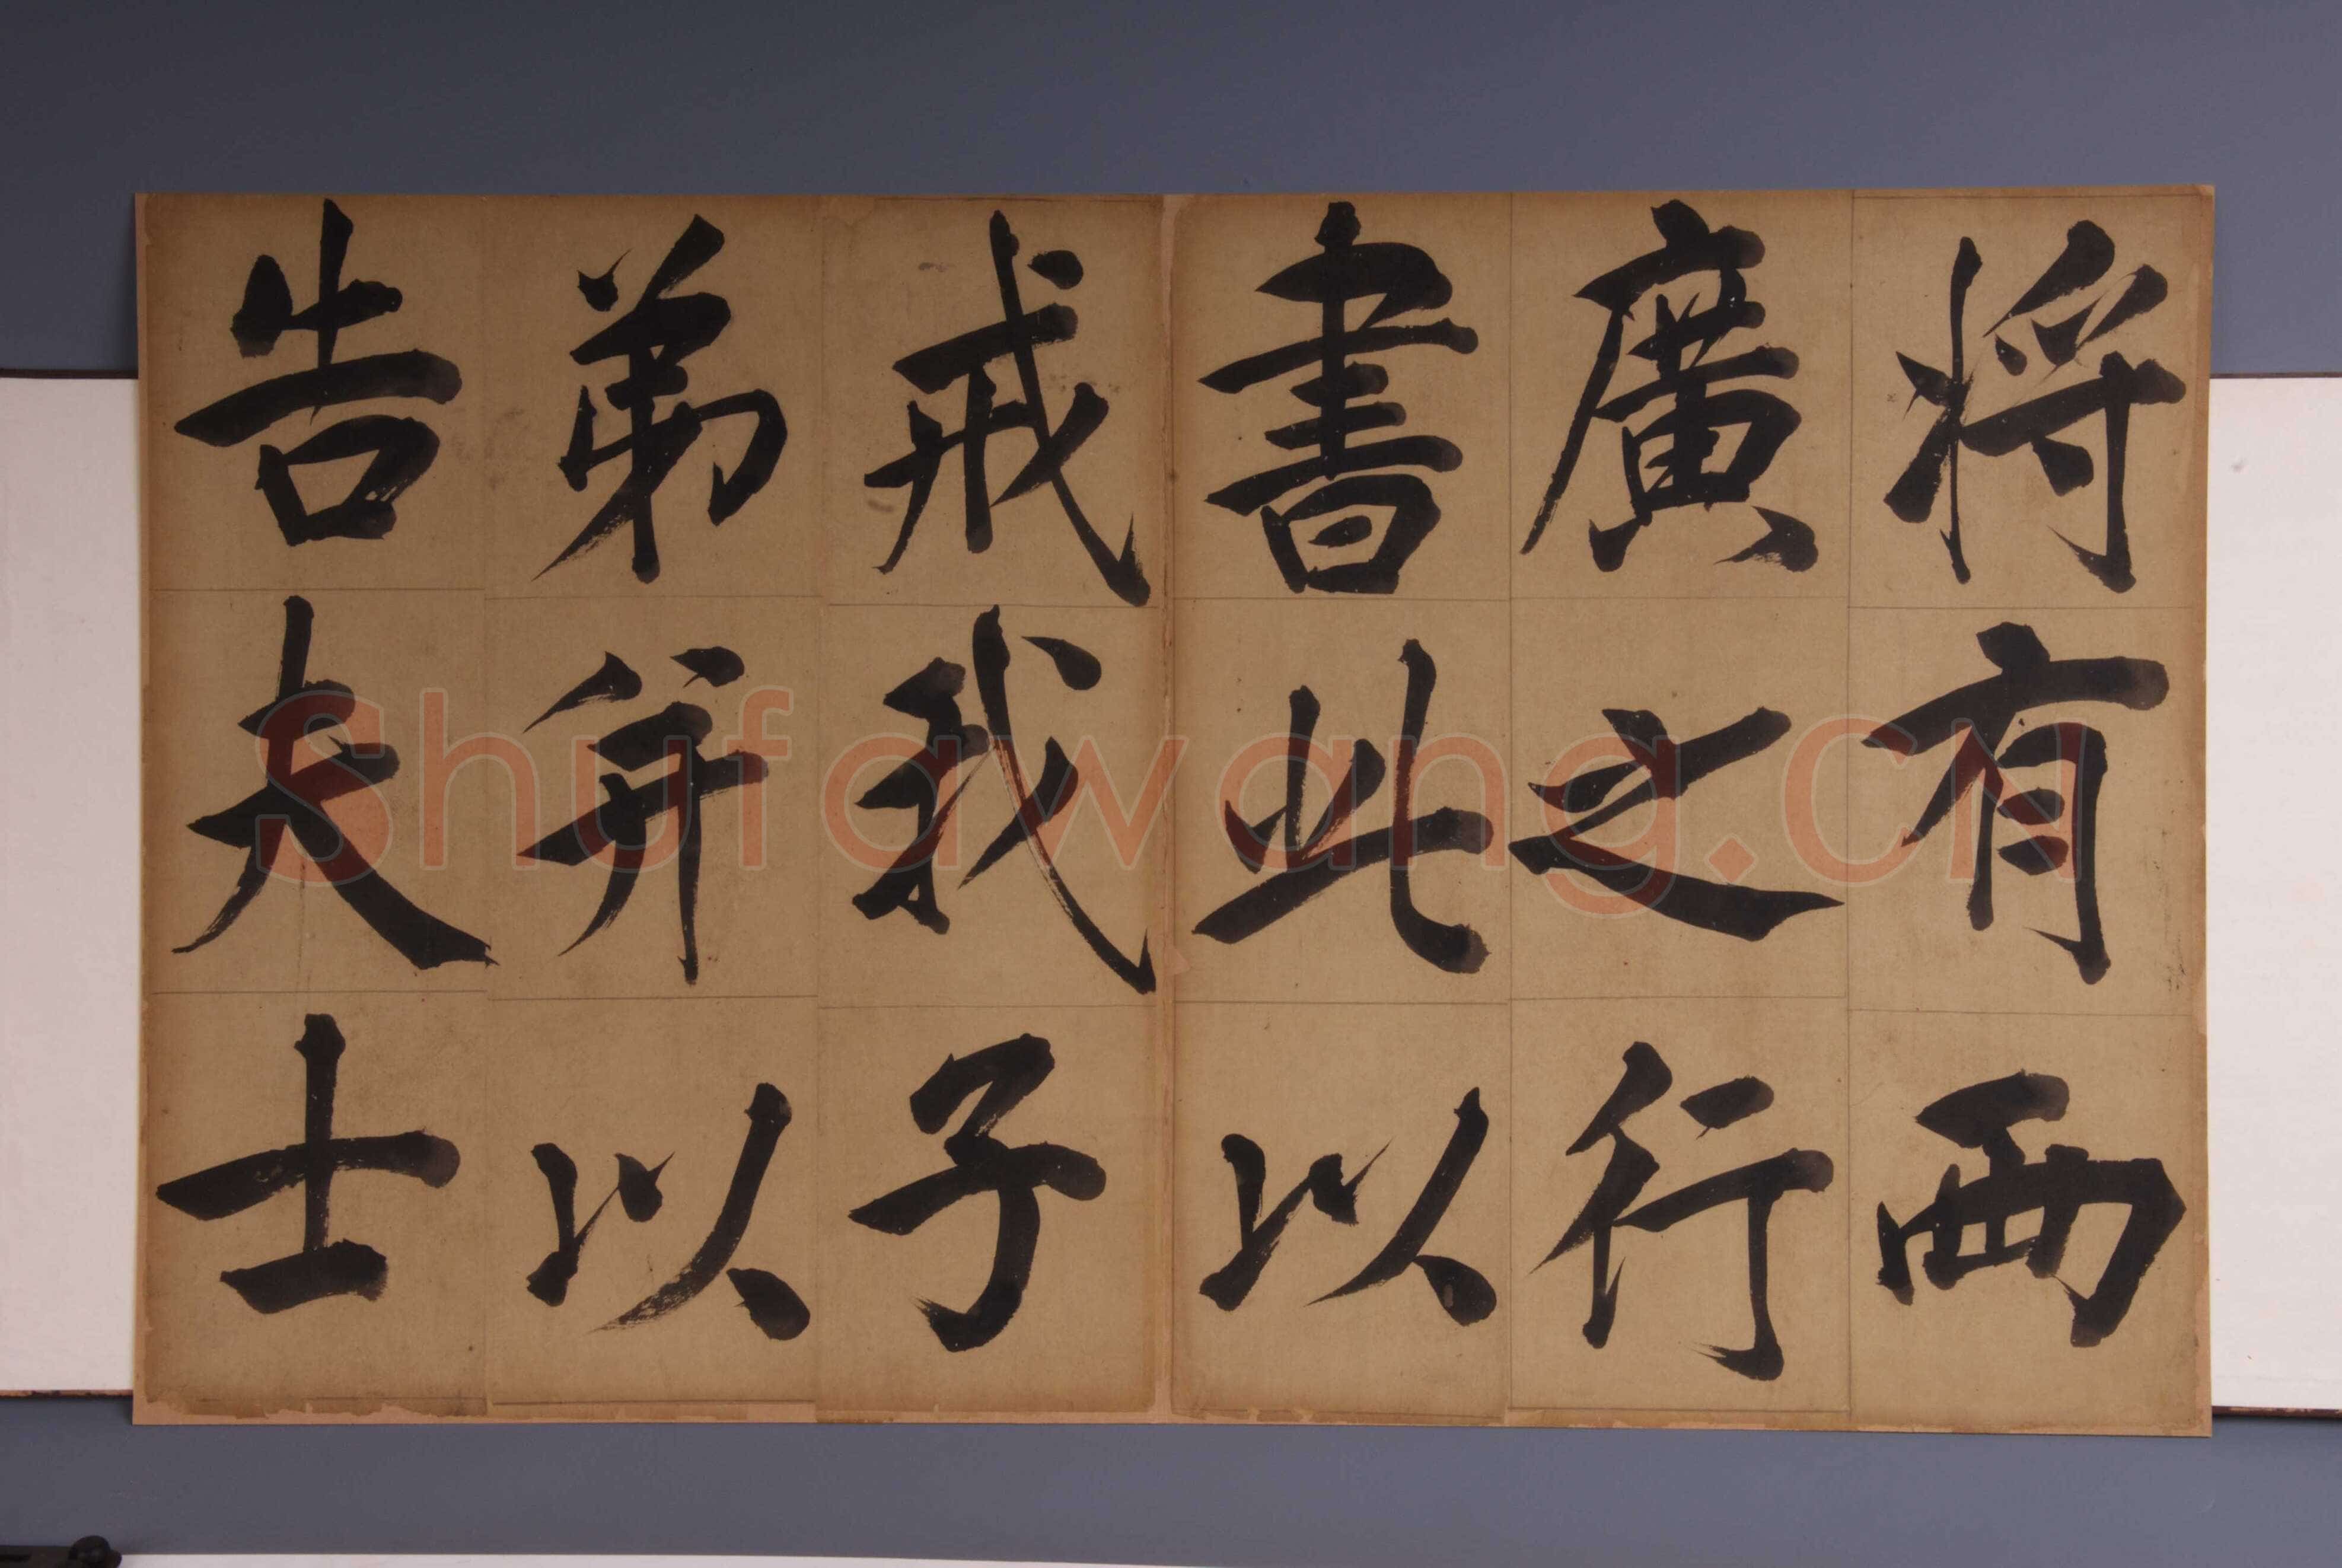 将有西
廣之行
書此以
戒我子
弟并以
告夫士
Shufawang.CN